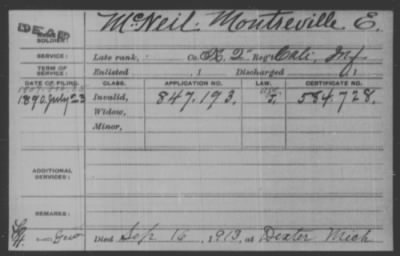 DEAD
McNeil. Montreville E.
SOLDIER
SERVICE: Late rank, Co. K. 2" Reg't Cali, Inf
TERM OF SERVICE: Enlisted 1 Discharged 1
DATE OF FILING. CLASS. APPLICATION NO. LAW. CERTIFICATE NO.
1890. July 23 Invalid, 847.193. J. 584.728.
Widow,
Minor,
ADDITIONAL SERVICES:
REMARKS:
Died Sep 16, 1913, at Dexter Mich